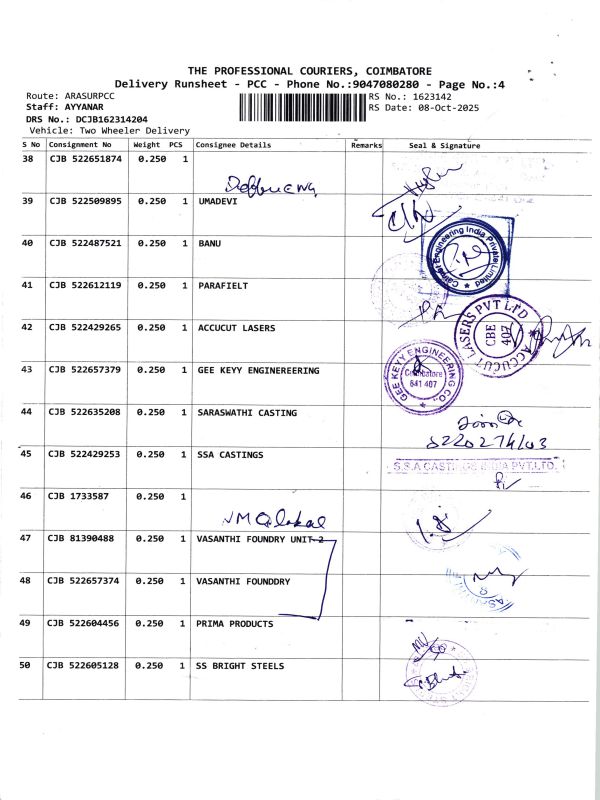 THE PROFESSIONAL COURIERS, COIMBATORE
Delivery Runsheet - PCC - Phone No.:9047080280 - Page No.:4
Route: ARASURPCC
Staff: AYYANAR
DRS No.: DCJB162314204
Vehicle: Two Wheeler Delivery
RS No.: 1623142
RS Date: 08-Oct-2025
S No Consignment No Weight PCS Consignee Details Remarks Seal & Signature
38 CJB 522651874 0.250 1
39 CJB 522509895 0.250 1 UMADEVI
40 CJB 522487521 0.250 1 BANU
Engineering India Private Limited
41 CJB 522612119 0.250 1 PARAFIELT
42 CJB 522429265 0.250 1 ACCUCUT LASERS
ACCUCUT LASERS PVT LTD
CBE
407
43 CJB 522657379 0.250 1 GEE KEYY ENGINEREERING
GEE KEYY ENGINEERING CO.,
Coimbatore
641 407
44 CJB 522635208 0.250 1 SARASWATHI CASTING
45 CJB 522429253 0.250 1 SSA CASTINGS
S.S.A CASTINGS INDIA PVT.LTD.
46 CJB 1733587 0.250 1
47 CJB 81390488 0.250 1 VASANTHI FOUNDRY UNIT-2
48 CJB 522657374 0.250 1 VASANTHI FOUNDDRY
49 CJB 522604456 0.250 1 PRIMA PRODUCTS
50 CJB 522605128 0.250 1 SS BRIGHT STEELS